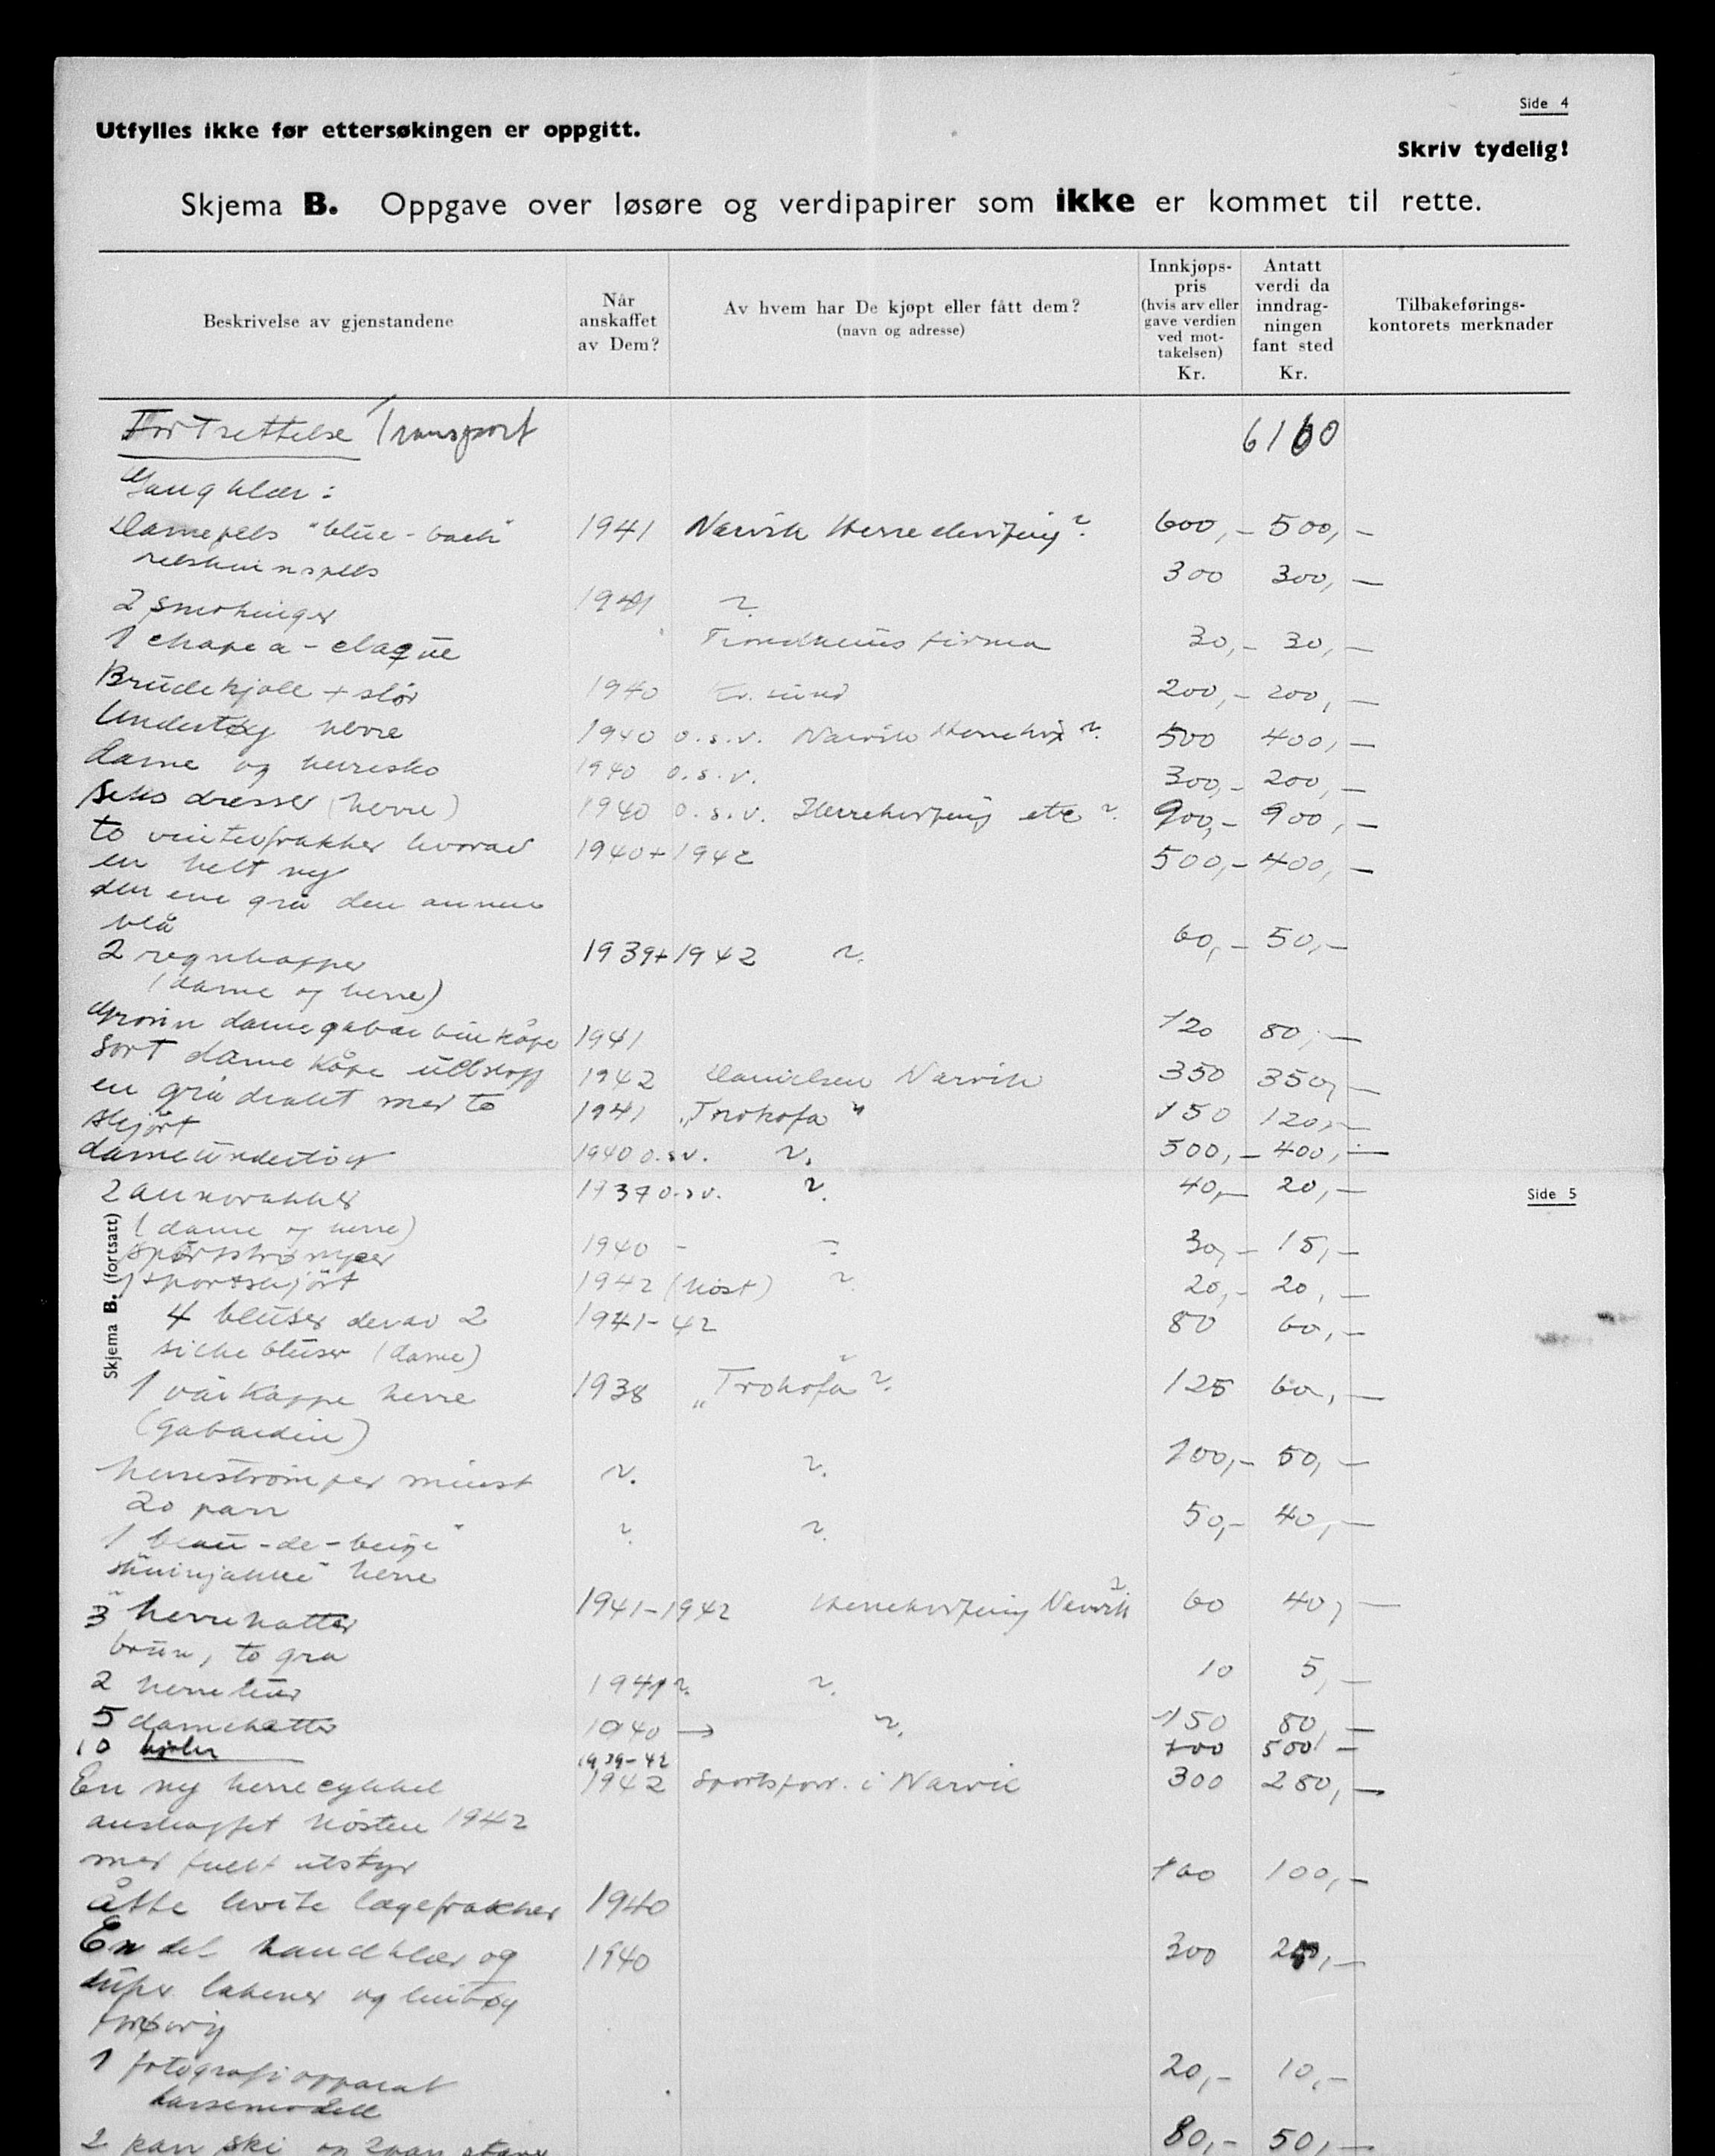 Side 4
Utfylles ikke før ettersøkingen er oppgitt.
Skriv tydelig!
Skjema B. Oppgave over løsøre og verdipapirer som ikke er kommet til rette.
Beskrivelse av gjenstandene
Når anskaffet av Dem?
Av hvem har De kjøpt eller fått dem? (navn og adresse)
Innkjøps-pris (hvis arv eller gave verdien ved mot-takelsen) Kr.
Antatt verdi da inndrag-ningen fant sted Kr.
Tilbakeførings-kontorets merknader
Fortsettelse Transport 6160
Gangklær:
Damepels "blue-back" 1941 Narvik Herreekvipering? 600,- 500,-
selskinnspels
2 smokinger 1941 ? 300 300,-
1 chapea-claque Trondheims firma 30,- 30,-
Brudekjole + slør 1940 Kr.sund 200,- 200,-
Undertøy herre 1940 o.s.v. Narvik ? 500 400,-
dame og herresko 1940 o.s.v. 300,- 200,-
seks dresser (herre) 1940 o.s.v. etc ? 900,- 900,-
to vinterfrakker hvorav 1940+1942 500,- 400,-
en helt ny
den ene grå den annen
blå
2 regnkapper 1939+1942 ? 60,- 50,-
(dame og herre)
Grønn dame kåpe 1941 120 80,-
Sort dame kåpe ullstoff 1942 Danielsen Narvik 350 350,-
en grå drakt med to 1941 "Trokofa" 150 120,-
skjørt
dameundertøy 1940 o.s.v. ? 500,- 400,-
2 annorakker 1937 o.s.v. ? 40,- 20,-
Side 5
Skjema B. (fortsatt)
(dame og herre)
sportstrømper 1940 - - 30,- 15,-
1 sportsskjørt 1942 (høst) ? 20,- 20,-
4 bluser derav 2 1941-42 80 60,-
silkebluser (dame)
1 vårkappe herre 1938 "Trokofa" ? 125 60,-
(gabardin)
herrestrømper minst ? ? 100,- 50,-
20 parr
1 "beau-de-beige" ? ? 50,- 40,-
skinnjakke herre
3 herrehatter 1941-1942 Herreekvipering Narvik ? 60 40,-
brun, to grå
2 herreluer 1941 ? ? 10 5,-
5 damehatter 1940 → ? 150 80,-
10 kjoler 1939-42 500 -
En ny herrecykkel 1942 Sportsforr. i Narvik 300 280,-
anskaffet høsten 1942
med fullt utstyr
åtte hvite lægefrakker 1940 160 100,-
En del handklær og 1940 300
lakener og lintøy
forøvrig
1 fotografiapparat 20,- 10,-
kassemodell
2 parr ski og 2 parr staver 80,- 50,-